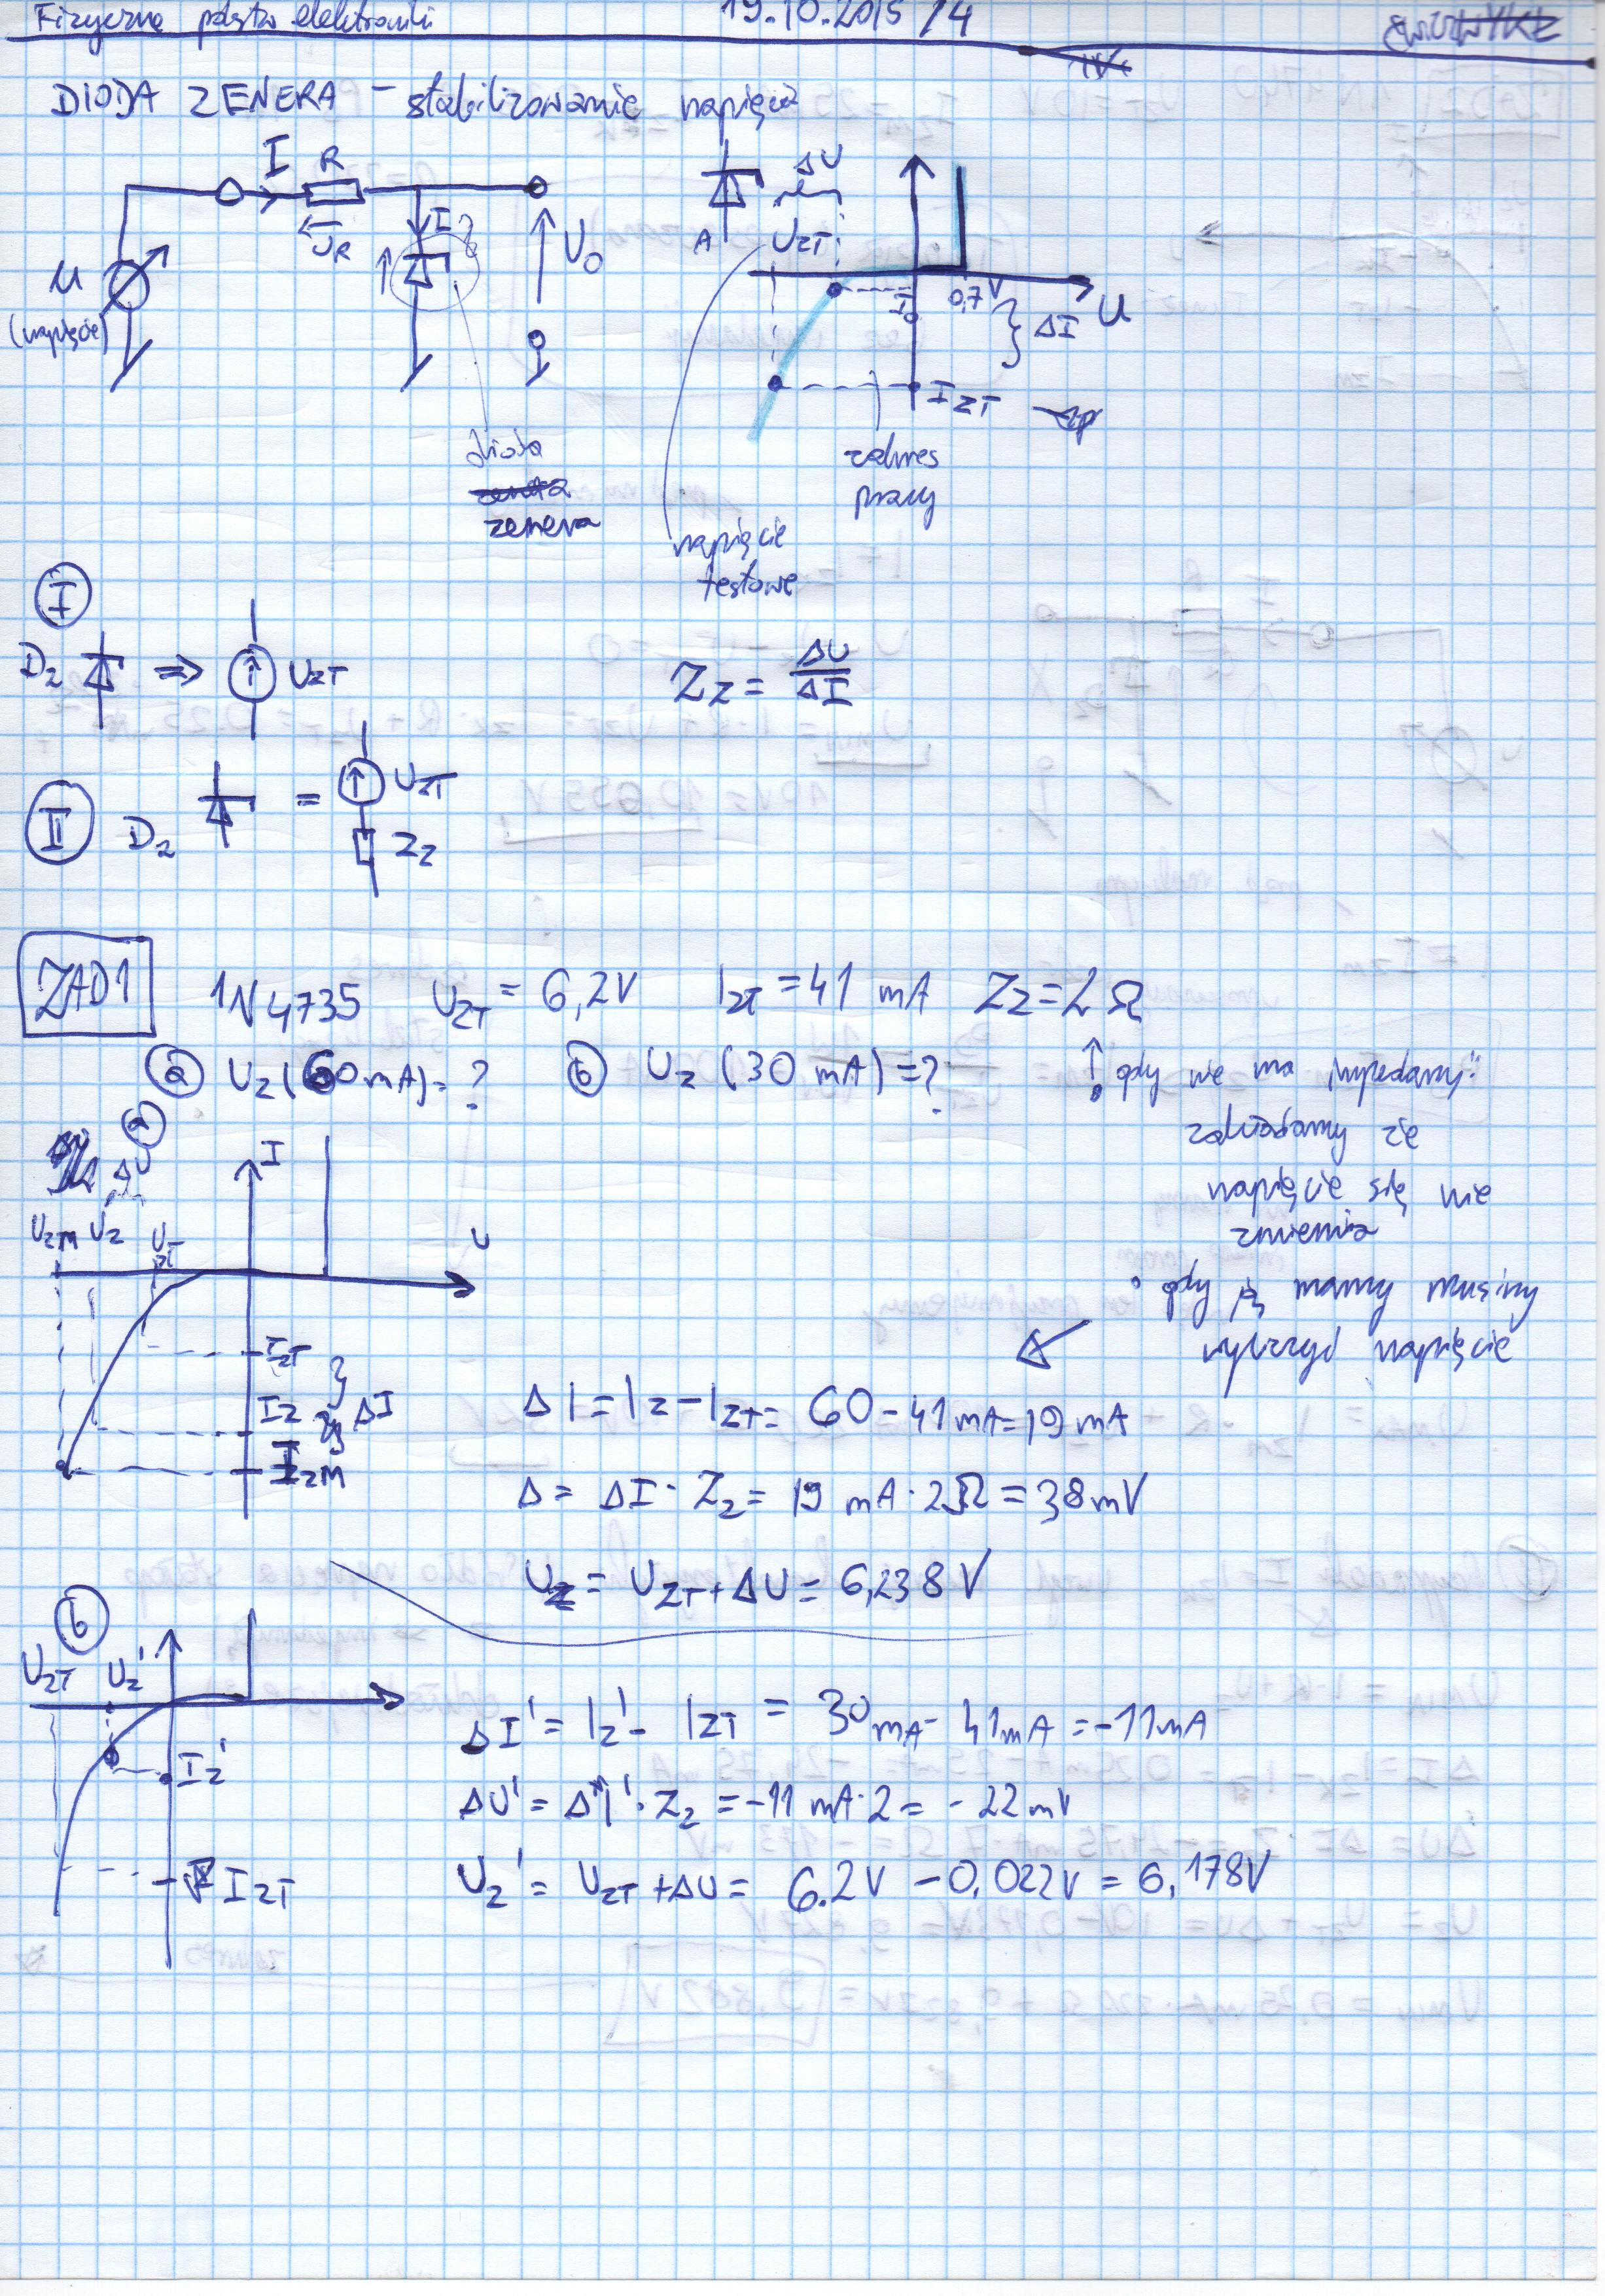 Fizyczne podstaw elektroniki 19.10.2015 /4
DIODA ZENERA - stabilizowanie napięcia
I R
UR
I
U0
U
(napięcie)
dioda
zenera
ΔU
A UZT
0,7V
I0
ΔI
U
IZT
zakres
pracy
napięcie
testowe
I
DZ ⇒ UZT
ZZ = ΔU/ΔI
II DZ = UZT
ZZ
ZAD1 1N4735 UZT = 6,2V IZT = 41 mA ZZ = 2 Ω
a UZ (60 mA) = ? b UZ (30 mA) = ?
↑
• gdy nie ma impedancji:
zakładamy że
napięcie się nie
zmienia
• gdy ją mamy musimy
napięcie
a
ΔU
I
UZM UZ UZT
U
IZT
IZ ΔI
IZM
ΔI = IZ - IZT = 60 - 41 mA = 19 mA
Δ = ΔI · ZZ = 19 mA · 2Ω = 38 mV
UZ = UZT + ΔU = 6,238 V
b
UZT UZ'
IZ'
IZT
ΔI' = IZ' - IZT = 30 mA - 41 mA = -11 mA
ΔU' = ΔI' · ZZ = -11 mA · 2 = -22 mV
UZ' = UZT + ΔU = 6.2V - 0,022V = 6,178V